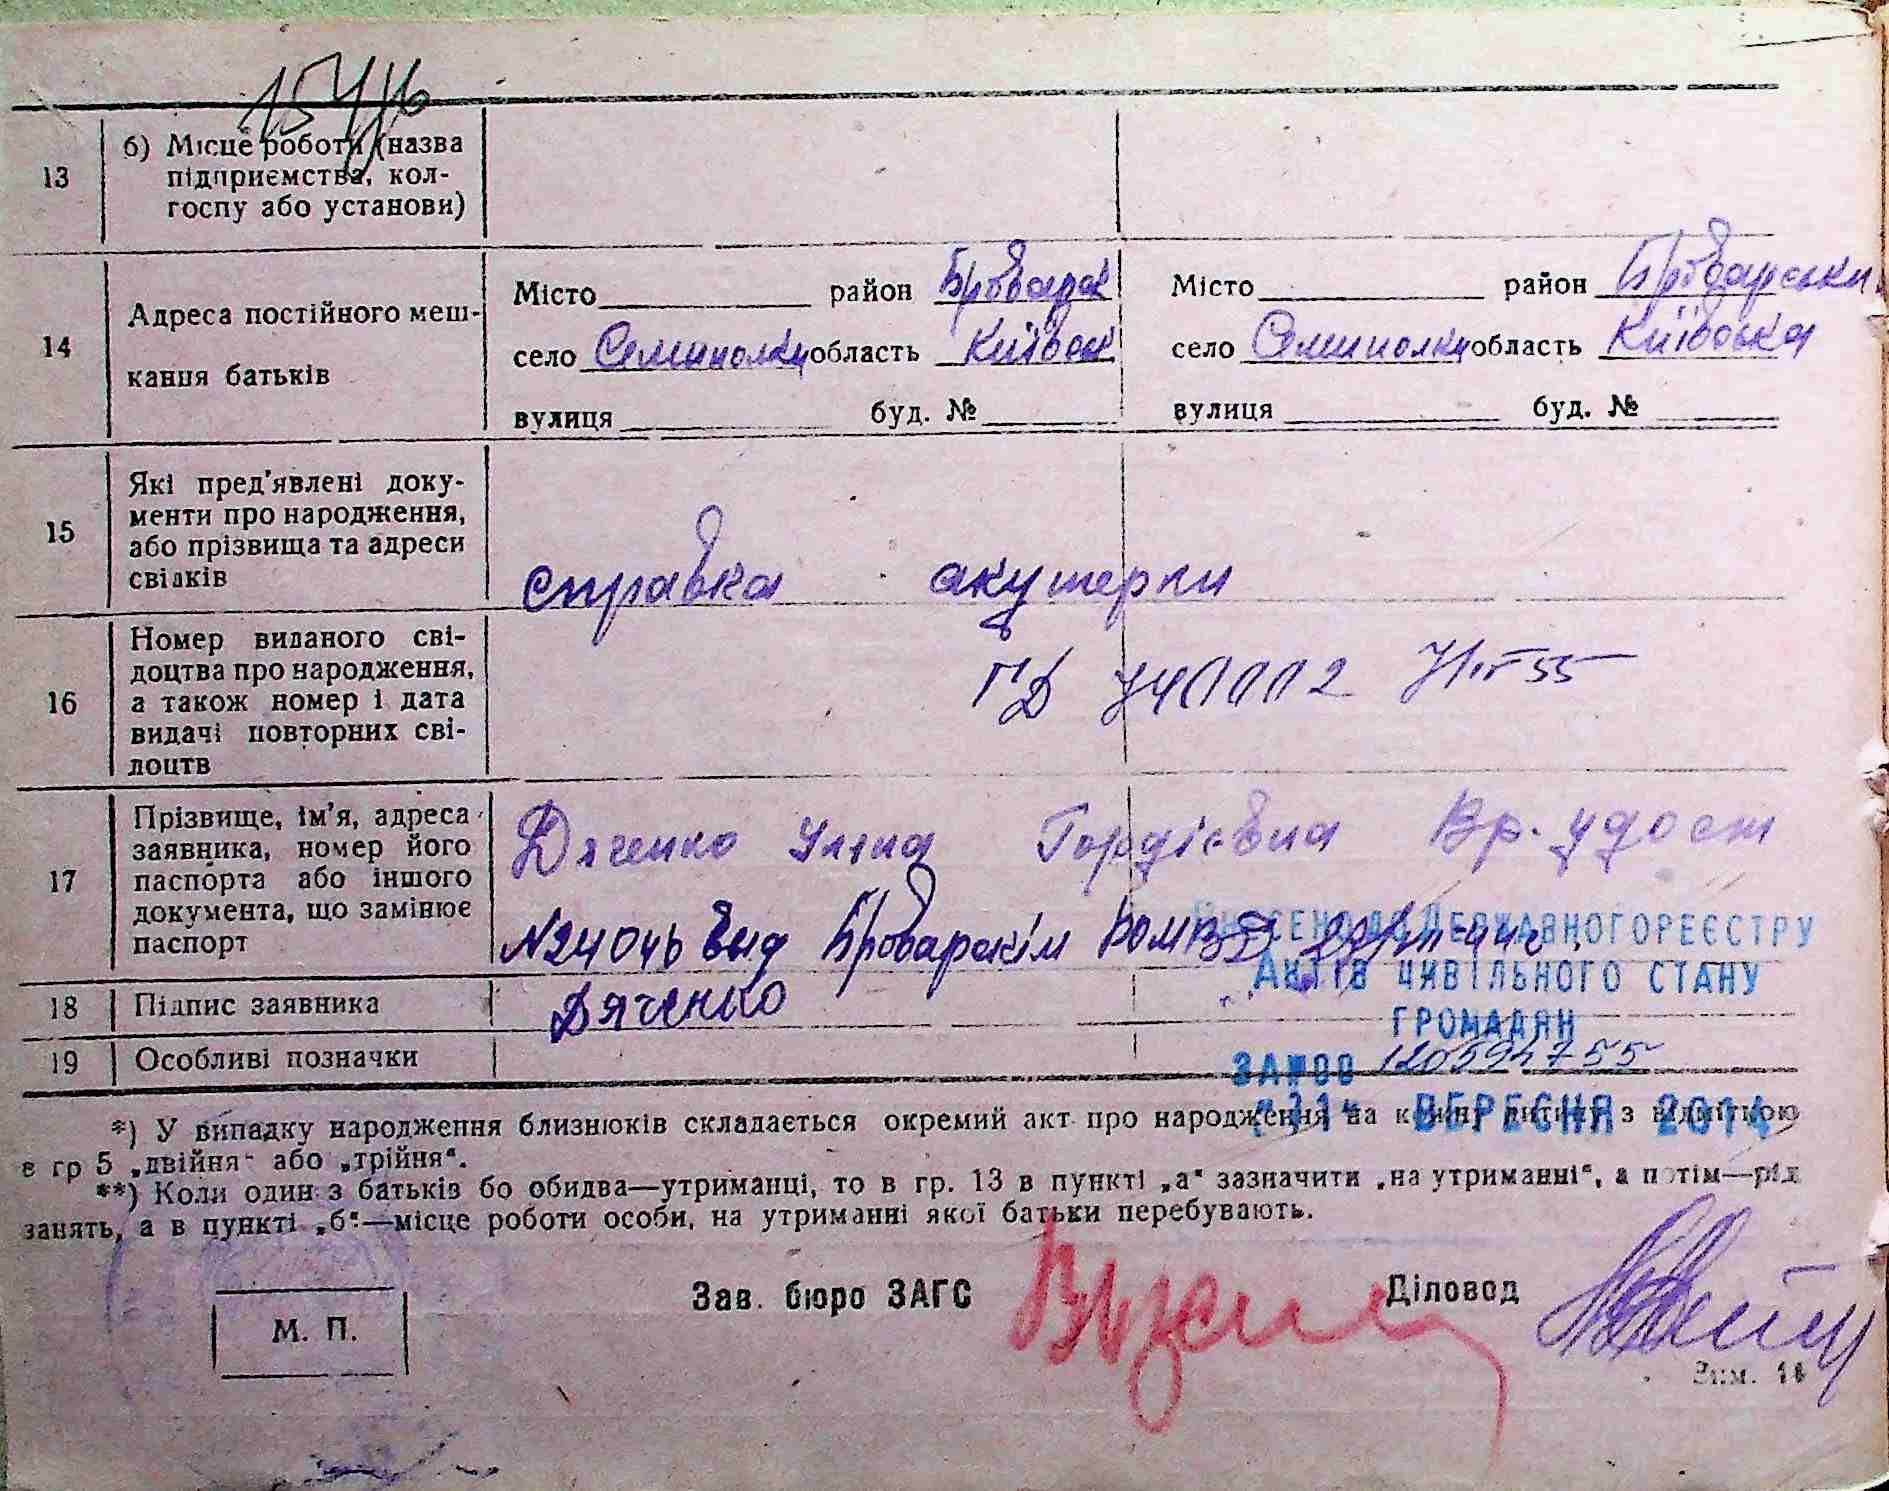 13
б) Місце роботи (назва
підприємства, кол-
госпу або установи)
14
Адреса постійного меш-
кання батьків
Місто район Броварськ
село Семиполки область Київськ
вулиця буд. №
Місто район Броварський
село Семиполки область Київська
вулиця буд. №
15
Які пред'явлені доку-
менти про народження,
або прізвища та адреси
свідків
справка акушерки
16
Номер виданого сві-
доцтва про народження,
а також номер і дата
видачі повторних сві-
доцтв
ГД
17
Прізвище, ім'я, адреса
заявника, номер його
паспорта або іншого
документа, що замінює
паспорт
Дяченко Уляна Гордієвна Вр. удост
№ 24046 вид Броварскім РОМВД
18
Підпис заявника
Дяченко
19
Особливі позначки
Внесено до Державного реєстру
Актів цивільного стану
громадян
120594755
вересня 2014
*) У випадку народження близнюків складається окремий акт про народження на кожну дитину з відміткою
в гр 5 „двійня" або „трійня".
**) Коли один з батьків бо обидва—утриманці, то в гр. 13 в пункті „а" зазначити „на утриманні", а потім—рід
занять, а в пункті „б"—місце роботи особи, на утриманні якої батьки перебувають.
Зав. бюро ЗАГС
Діловод
М. П.